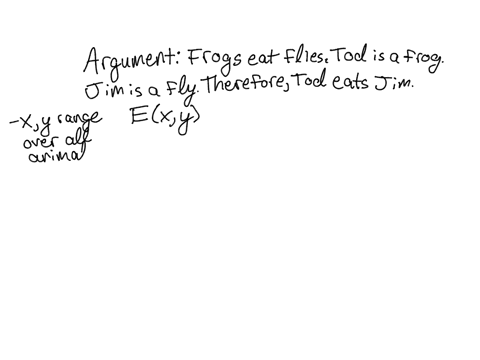 Argument: Frogs eat flies. Tod is a frog.
Jim is a fly. Therefore, Tod eats Jim.
-x, y range
over all
animal
E(x,y)